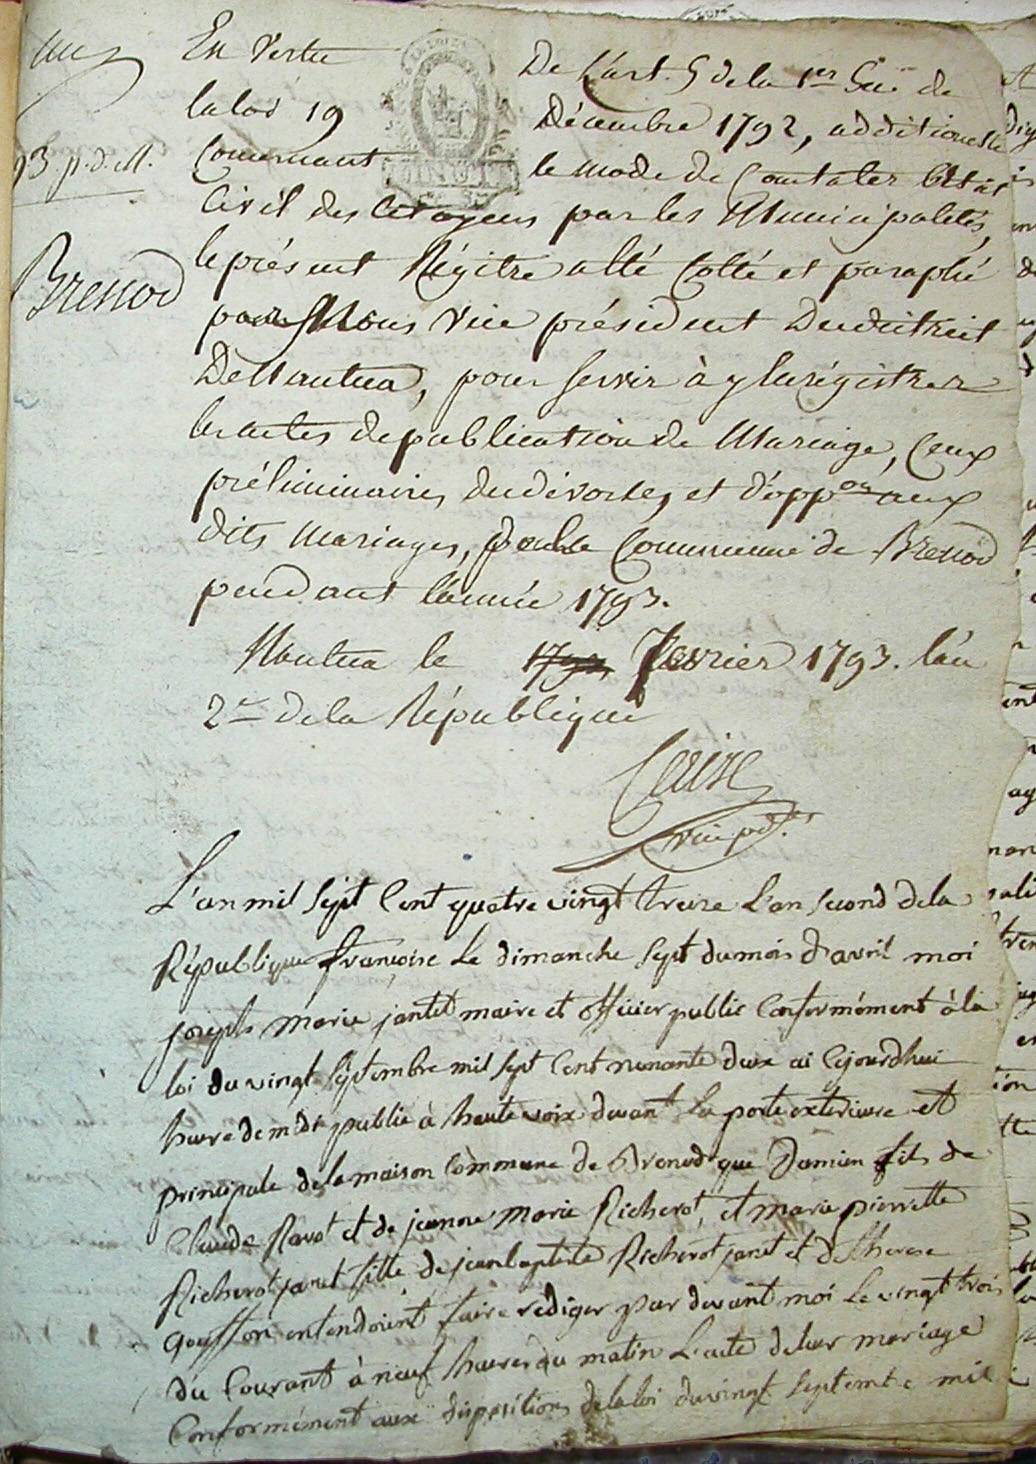 93. p. d. M.
Brenod
En vertu De l'art. 5 de la 1er Sec. de
la loi 19 Décembre 1792, additionelle
Concernant le mode de Constater l'état
Civil des Citoyens par les Municipalités,
le présent Régitre a été Cotté et paraphé
par Nous vice président Du district
De Nantua, pour servir à y Enrégistrer
les actes de publication de Mariage, Ceux
préliminaires du divorce, et d'oppon aux
dits Mariages, pour la Commune de Brenod
pendant l'année 1793.
Nantua le Fevrier 1793. l'an
2e de la République
vice pdt.
L'an mil sept Cent quatre vingt treize L'an second de la
République françoise Le dimanche sept du mois d'avril moi
joseph Marie jantet maire et officier public Conformément à la
loi du vingt septembre mil sept Cent nonante deux ai Cejourdhui
heure de midi publié à haute voix devant La porte exterieure et
principale de la maison Commune de Brenod que Damien fils de
Claude Ravot et de jeanne Marie Richerot, et marie pierrette
Richerot janet fille de jean baptiste Richerot janet et de Therese
Gouffon entendoient faire rediger par devant moi Le vingt trois
du Courant à neuf heures du matin L'acte de leur mariage
Conformément aux dispositions de la loi du vingt septembre mil